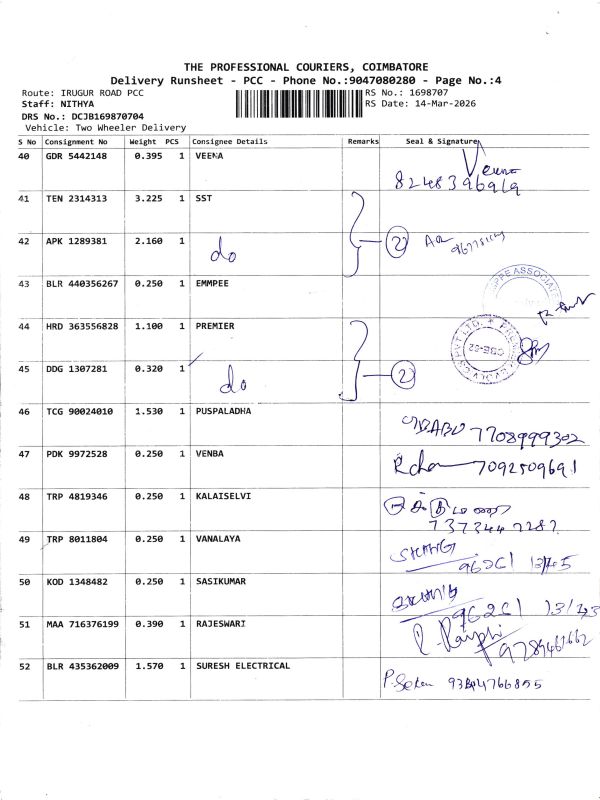 THE PROFESSIONAL COURIERS, COIMBATORE
Delivery Runsheet - PCC - Phone No.:9047080280 - Page No.:4
Route: IRUGUR ROAD PCC
RS No.: 1698707
Staff: NITHYA
RS Date: 14-Mar-2026
DRS No.: DCJB169870704
Vehicle: Two Wheeler Delivery
S No Consignment No Weight PCS Consignee Details Remarks Seal & Signature
40 GDR 5442148 0.395 1 VEENA Veena
8248396969
41 TEN 2314313 3.225 1 SST
42 APK 1289381 2.160 1 do 2
43 BLR 440356267 0.250 1 EMMPEE
44 HRD 363556828 1.100 1 PREMIER
45 DDG 1307281 0.320 1 do 2
46 TCG 90024010 1.530 1 PUSPALADHA BABU 7708999302
47 PDK 9972528 0.250 1 VENBA 7092509691
48 TRP 4819346 0.250 1 KALAISELVI
49 TRP 8011804 0.250 1 VANALAYA
50 KOD 1348482 0.250 1 SASIKUMAR
51 MAA 716376199 0.390 1 RAJESWARI
52 BLR 435362009 1.570 1 SURESH ELECTRICAL